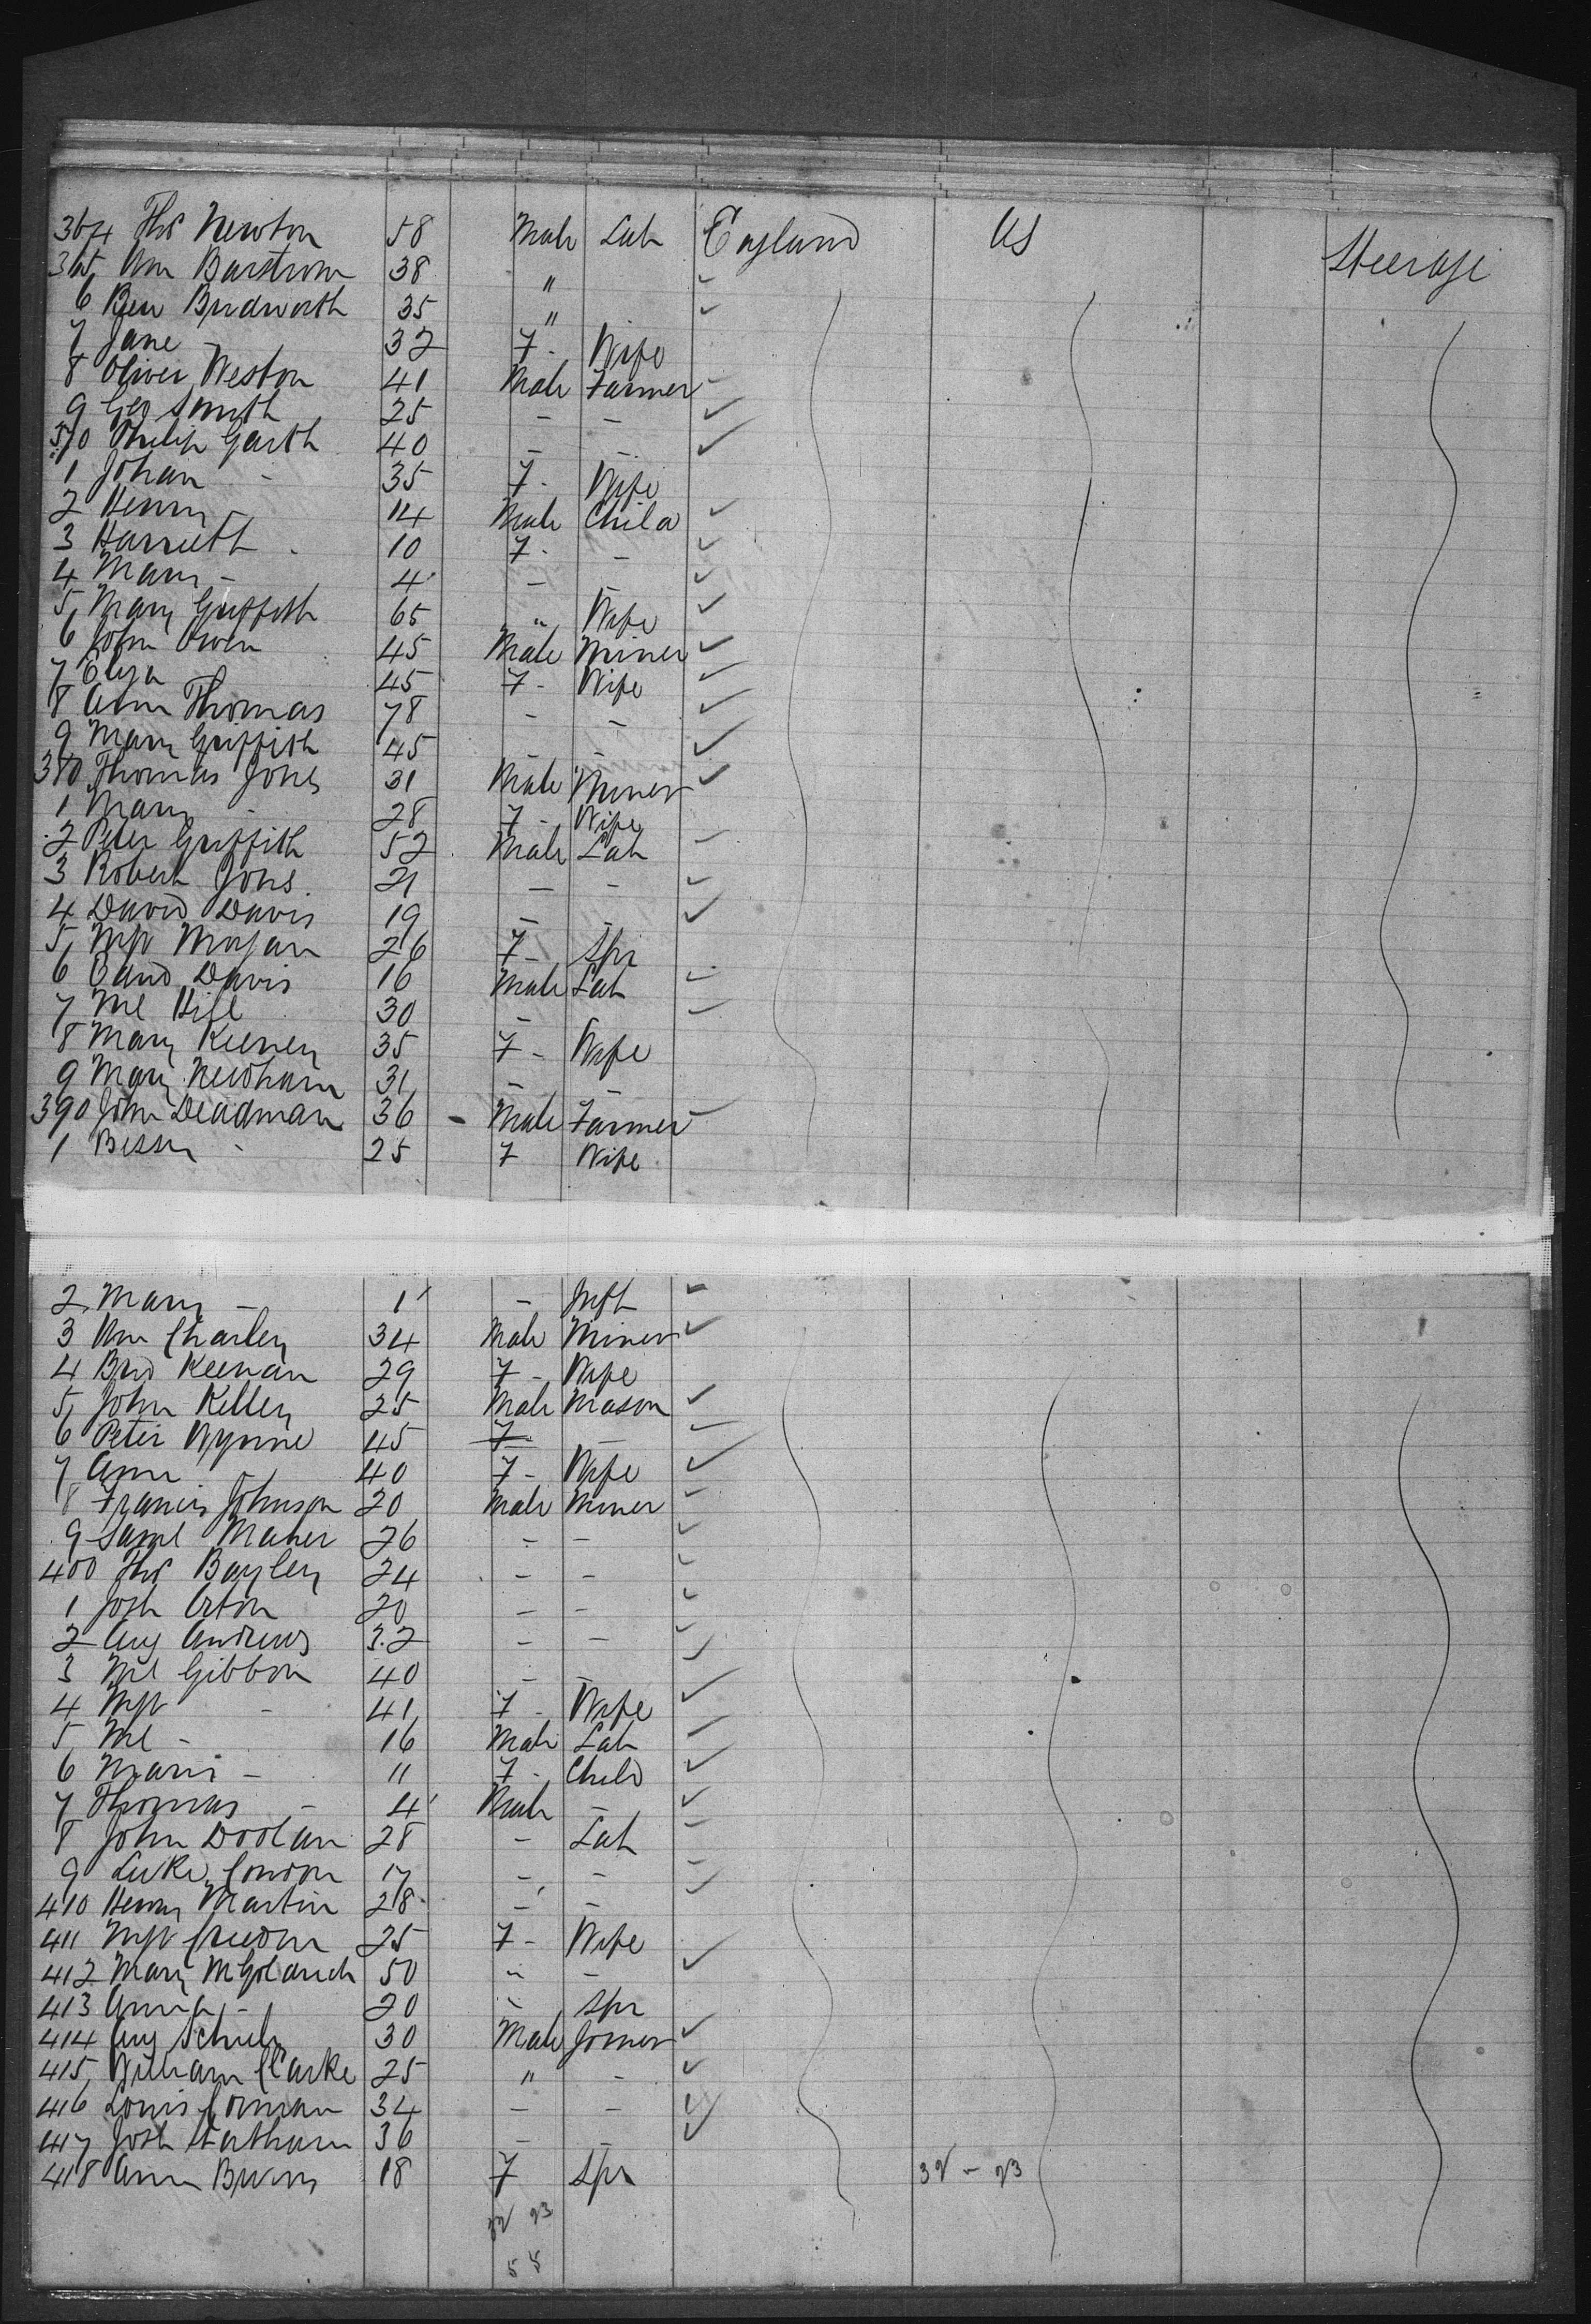 364 Ths Newton 58 Male Lab England US Steerage
365 Wm Barstrom 38 "
6 Ben Brudworth 35 "
7 Jane - 32 F - Wife
8 Oliver Weston 41 Male Farmer
9 Geo Smyth 25 - -
370 Philip Garth 40 - -
1 Johan - 35 F - Wife
2 Henry - 14 Male Child
3 Harrieth - 10 F - -
4 Mary - 4 - -
5 Mary Griffith 65 " Wife
6 John Owen 45 Male Miner
7 Eliza 45 F - Wife
8 Ann Thomas 78 - -
9 Mary Griffith 45 - -
380 Thomas Jones 31 Male Miner
1 Mary - 28 F - Wife
2 Peter Griffith 52 Male Lab
3 Robert Jons 21 - -
4 David Davis 19 - -
5 Mgt Morgan 26 F - Spr
6 David Davis 16 Male Lab
7 Ml Hill 30 -
8 Mary Keeney 35 F - Wife
9 Mary Newham 31 - -
390 John Deadman 36 - Male Farmer
1 Bessy - 25 F Wife
2 Mary - 1 - Inft
3 Wm Charley 34 Male Miner
4 Brid Keenan 29 F - Wife
5 John Kelley 25 Male Mason
6 Peter Wynne 45 F -
7 Ann - 40 F - Wife
8 Francis Johnson 20 Male Miner
9 Saml Maher 26 - -
400 Ths Bayley 24 - -
1 Josh Orton 20 - -
2 Aug Andrews 32 - -
3 Ml Gibbon 40 - -
4 Mgt - 41 F - Wife
5 Ml - 16 Male Lab
6 Maria - 11 F - Child
7 Thomas - 4 Male -
8 John Doolan 28 - Lab
9 Luke Condon 17 - -
410 Henry Martin 28 - -
411 Mgt Creedon 25 F - Wife
412 Mary McGolarich 50 " -
413 Anna - 20 " Spr
414 Aug Schulz 30 Male Joiner
415 William Clarke 25 " -
416 Louis Corman 34 - -
417 Josh Statham 36 - -
418 Ann Burns 18 F Spr 32 - 23
32 23
55